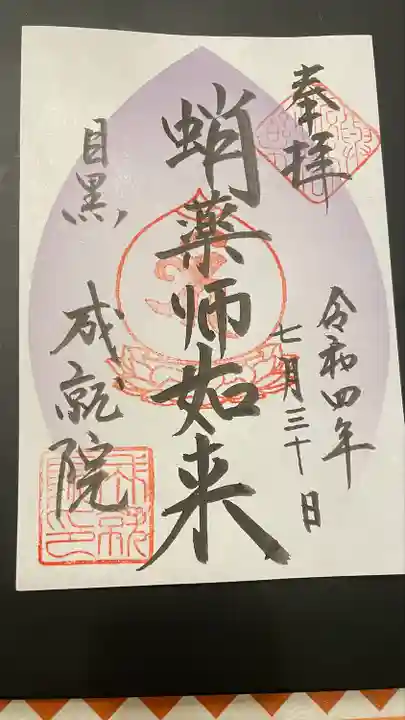 奉拝
令和四年
七月三十日
蛸薬師如来
目黒
成就院